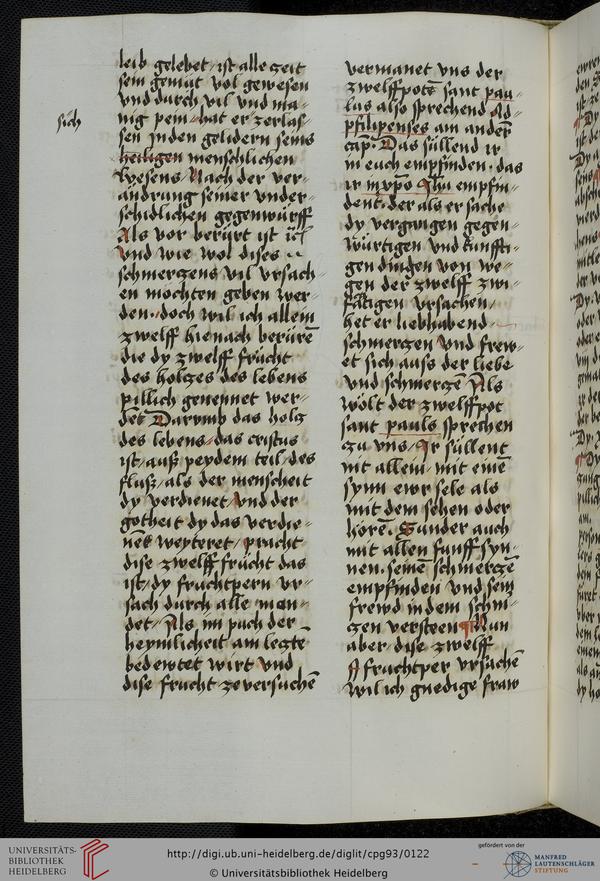 sich
leib gelebet / ist alle zeit
sein gemüt vol gewesen
vnd durch vil vnd ma⸗
nig pein / hat er zerlas⸗
sen jn den gelidern seins
heiligen menschlichen
wesens / Nach der ver⸗
andrung seiner vnder⸗
schidlichen gegenwürff
Als vor berürt ist
vnd wie wol dises
schmerzens vil vrsach⸗
en möchten geben wer⸗
den / doch wil ich allein
zwelff hienach berürē
die dy zwelff frücht
des holzes des lebens
pillich genennet wer⸗
det Darvmb das holz
des lebens / das cristus
ist / auß peydem teil / des
fluß / als der menscheit
dy verdienet / vnd der
gotheit dy das verdie⸗
net weyteret / pracht
dise zwelff frücht das
ist / dy fruchtpern vr⸗
sach durch alle mon⸗
det / Als im puch der
heymlicheit am legtē
bedewtet wirt vnd
dise frucht ze versuchē
vermanet vns der
zwelffpotē sant pau⸗
lus also sprechend Ad
pfilipenses am anderē
cap. Das süllend ir
in euch empfinden / das
ir in xpō Jhū empfin⸗
dent / der als er sache
dy vergangen gegen⸗
würtigen vnd künffti⸗
gen dingen von we⸗
gen der zwelff zwi⸗
fältigen vrsachen /
het er liebhabend
schmerzen vnd frew⸗
et sich auss der liebe
vnd schmerzē Als
wölt der zwelffpot
sant pauls sprechen
zu vns / Ir süllent
nit allein mit einē
synn ewr sele als
mit dem sehen oder
hörē / Sunder auch
mit allen funff syn⸗
nen / seinē schmerzē
empfinden / vnd sein
frewd in dem schm⸗
zen versteen Nun
aber dise zwelff
fruchtper vrsachē
wil ich gnedige fraw
UNIVERSITÄTS-
BIBLIOTHEK
HEIDELBERG
http://digi.ub.uni-heidelberg.de/diglit/cpg93/0122
© Universitätsbibliothek Heidelberg
gefördert von der
MANFRED
LAUTENSCHLÄGER
STIFTUNG